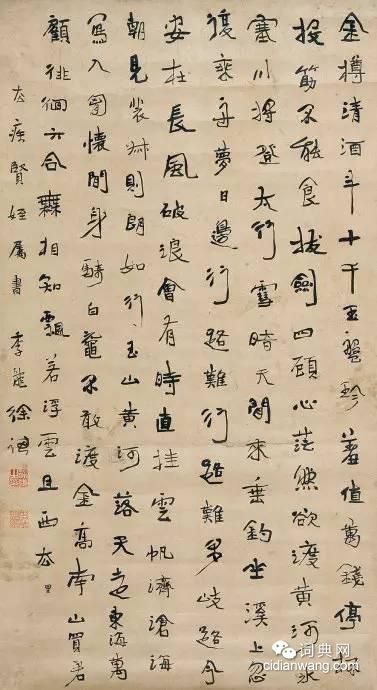 金樽清酒斗十千玉盤珍羞值萬錢停杯
投筯不能食拔劍四顧心茫然欲渡黃河冰
塞川將登太行雪暗天閒來垂釣坐溪上忽
復乘舟夢日邊行路難行路難多岐路今
安在長風破浪會有時直挂雲帆濟滄海
朝見裴叔則朗如行玉山黃河落天走東海萬
寫入胷懷間身騎白黿不敢渡金高南山買君
顧徘徊六合無相知飄若浮雲且西去 里
賢姪屬書 李 徐
词典网
cidianwang.com